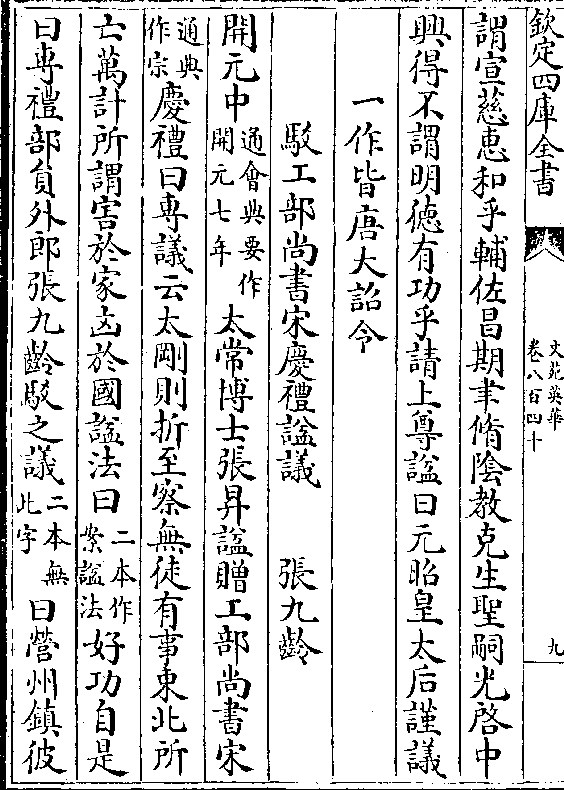 欽定四庫全書
文苑英華
卷八百四十
九
謂宣慈恵和乎輔佐昌期聿脩陰教克生聖嗣光啓中
興得不謂明徳有功乎請上尊諡曰元昭皇太后謹議
一作皆唐大詔令
駮工部尚書宋慶禮諡議 張九齡
開元中通典會要作開元七年太常博士張昇諡贈工部尚書宋
通典作宗慶禮曰專議云太剛則折至察無徒有事東北所
亡萬計所謂害於家凶於國諡法曰二本作案諡法好功自是
曰専禮部員外郎張九齡駮之議二本無此字曰營州鎮彼